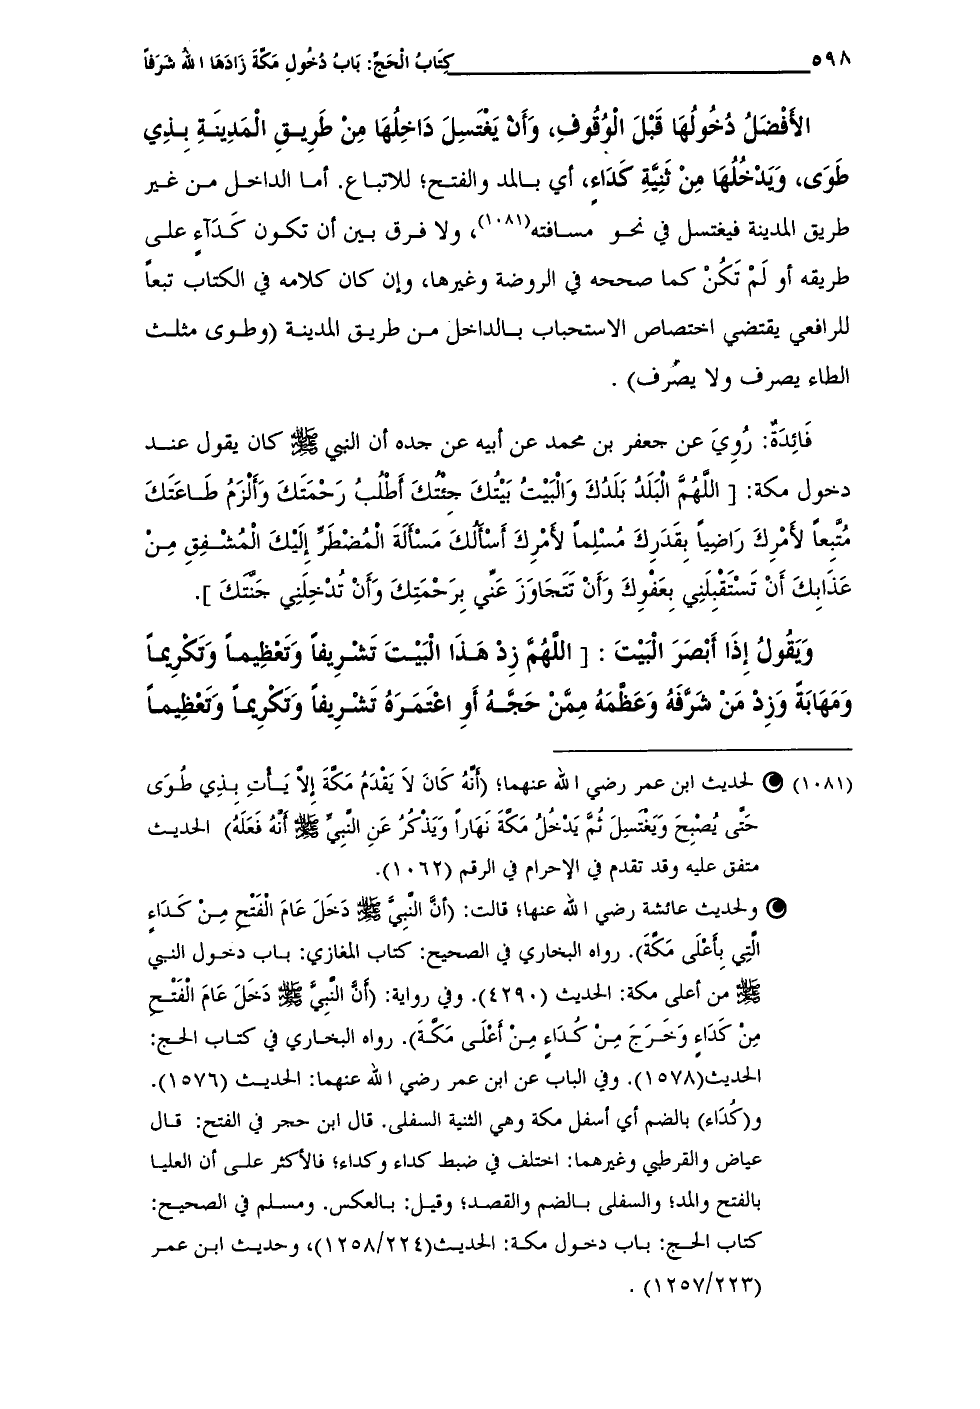 ٥٩٨ كِتَابُ الْحَجِّ: بَابُ دُخُولِ مَكَّةَ زَادَهَا اللهُ شَرَفاً
الأَفْضَلُ دُخُولُهَا قَبْلَ الْوُقُوفِ، وَأَنْ يَغْتَسِلَ دَاخِلُهَا مِنْ طَرِيقِ الْمَدِينَةِ بِذِي
طَوَى، وَيَدْخُلُهَا مِنْ ثَنِيَّةِ كَدَاءٍ، أي بالمد والفتح؛ للاتباع. أما الداخل من غير
طريق المدينة فيغتسل في نحو مسافته(١٠٨١)، ولا فرق بين أن تكون كَدَآءٍ على
طريقه أو لَمْ تَكُنْ كما صححه في الروضة وغيرها، وإن كان كلامه في الكتاب تبعاً
للرافعي يقتضي اختصاص الاستحباب بالداخل من طريق المدينة (وطوى مثلث
الطاء يصرف ولا يصُرف) .
فَائِدَةٌ: رُوِيَ عن جعفر بن محمد عن أبيه عن جده أن النبي ﷺ كان يقول عند
دخول مكة: [ اللَّهُمَّ الْبَلَدُ بَلَدُكَ وَالْبَيْتُ بَيْتُكَ جِئْتُكَ أَطْلُبُ رَحْمَتَكَ وَأَلْزَمُ طَاعَتَكَ
مُتَّبِعاً لأَمْرِكَ رَاضِياً بِقَدَرِكَ مُسْلِماً لأَمْرِكَ أَسْأَلُكَ مَسْأَلَةَ الْمُضْطَرِّ إِلَيْكَ الْمُشْفِقِ مِنْ
عَذَابِكَ أَنْ تَسْتَقْبِلَنِي بِعَفْوِكَ وَأَنْ تَتَجَاوَزَ عَنِّي بِرَحْمَتِكَ وَأَنْ تُدْخِلَنِي جَنَّتَكَ ].
وَيَقُولُ إِذَا أَبْصَرَ الْبَيْتَ : [ اللَّهُمَّ زِدْ هَذَا الْبَيْتَ تَشْرِيفاً وَتَعْظِيماً وَتَكْرِيماً
وَمَهَابَةً وَزِدْ مَنْ شَرَّفَهُ وَعَظَّمَهُ مِمَّنْ حَجَّهُ أَوِ اعْتَمَرَهُ تَشْرِيفاً وَتَكْرِيماً وَتَعْظِيماً
(١٠٨١) لحديث ابن عمر رضي الله عنهما؛ (أَنَّهُ كَانَ لاَ يَقْدَمُ مَكَّةَ إِلاَّ يَأْتِ بِذِي طُوَى
حَتَّى يُصْبِحَ وَيَغْتَسِلَ ثُمَّ يَدْخُلُ مَكَّةَ نَهَاراً وَيَذْكُرُ عَنِ النَّبِيِّ ﷺ أَنَّهُ فَعَلَهُ) الحديث
متفق عليه وقد تقدم في الإحرام في الرقم (١٠٦٢).
ولحديث عائشة رضي الله عنها؛ قالت: (أَنَّ النَّبِيَّ ﷺ دَخَلَ عَامَ الْفَتْحِ مِنْ كَدَاءٍ
الَّتِي بِأَعْلَى مَكَّةَ). رواه البخاري في الصحيح: كتاب المغازي: باب دخول النبي
ﷺ من أعلى مكة: الحديث (٤٢٩٠). وفي رواية: (أَنَّ النَّبِيَّ ﷺ دَخَلَ عَامَ الْفَتْحِ
مِنْ كَدَاءٍ وَخَرَجَ مِنْ كُدَاءٍ مِنْ أَعْلَى مَكَّةَ). رواه البخاري في كتاب الحج:
الحديث(١٥٧٨). وفي الباب عن ابن عمر رضي الله عنهما: الحديث (١٥٧٦).
و(كُدَاء) بالضم أي أسفل مكة وهي الثنية السفلى. قال ابن حجر في الفتح: قال
عياض والقرطبي وغيرهما: اختلف في ضبط كداء وكداء؛ فالأكثر على أن العليا
بالفتح والمد؛ والسفلى بالضم والقصد؛ وقيل: بالعكس. ومسلم في الصحيح:
كتاب الحج: باب دخول مكة: الحديث(١٢٥٨/٢٢٤)، وحديث ابن عمر
(١٢٥٧/٢٢٣) .